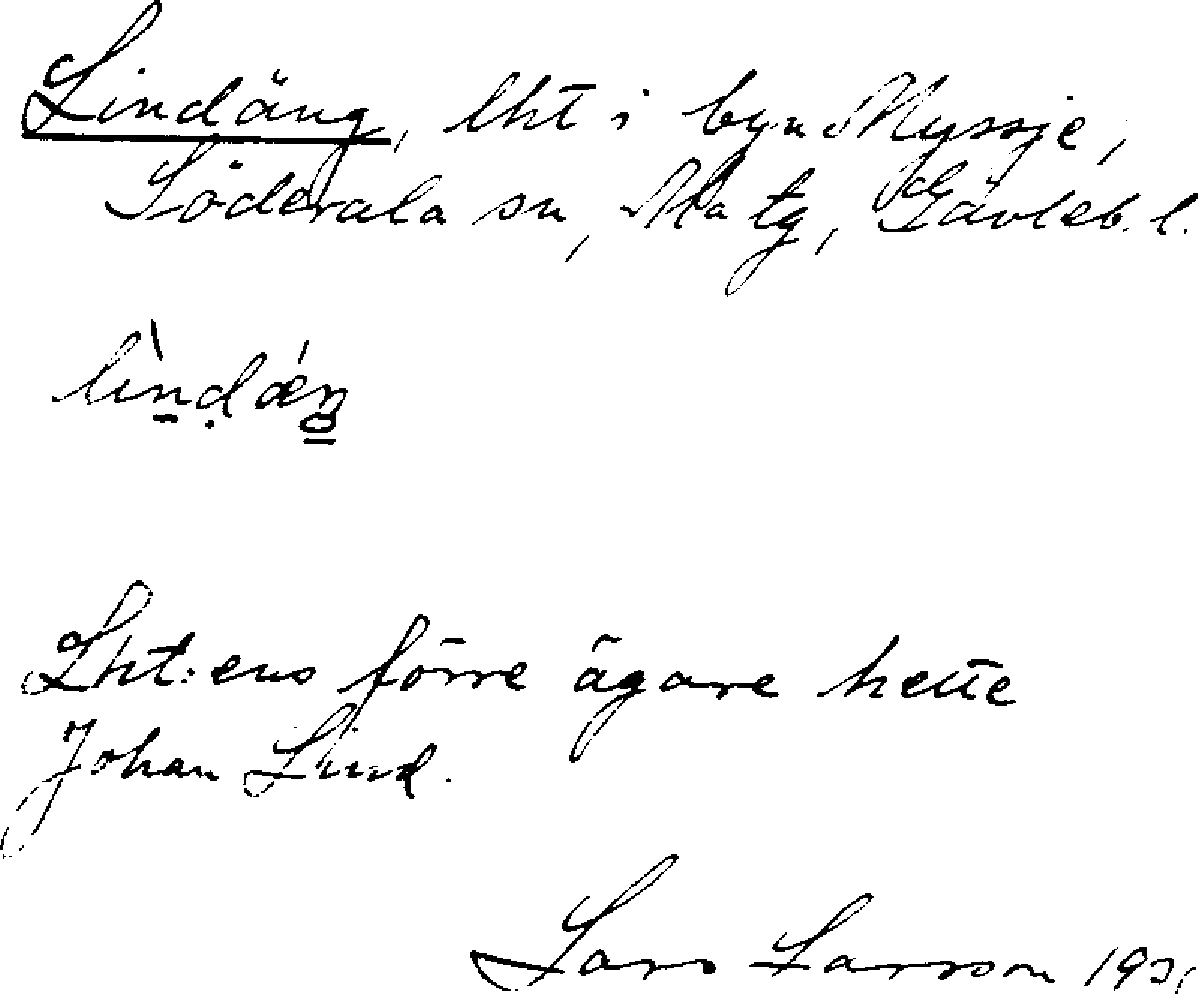 Lindäng, lht i byn Myssje,
Söderala sn, Ala tg, Gävleb. l.
lìndǽŋ
Lht:ens förre ägare hette
Johan Lind.
Lars Larsson